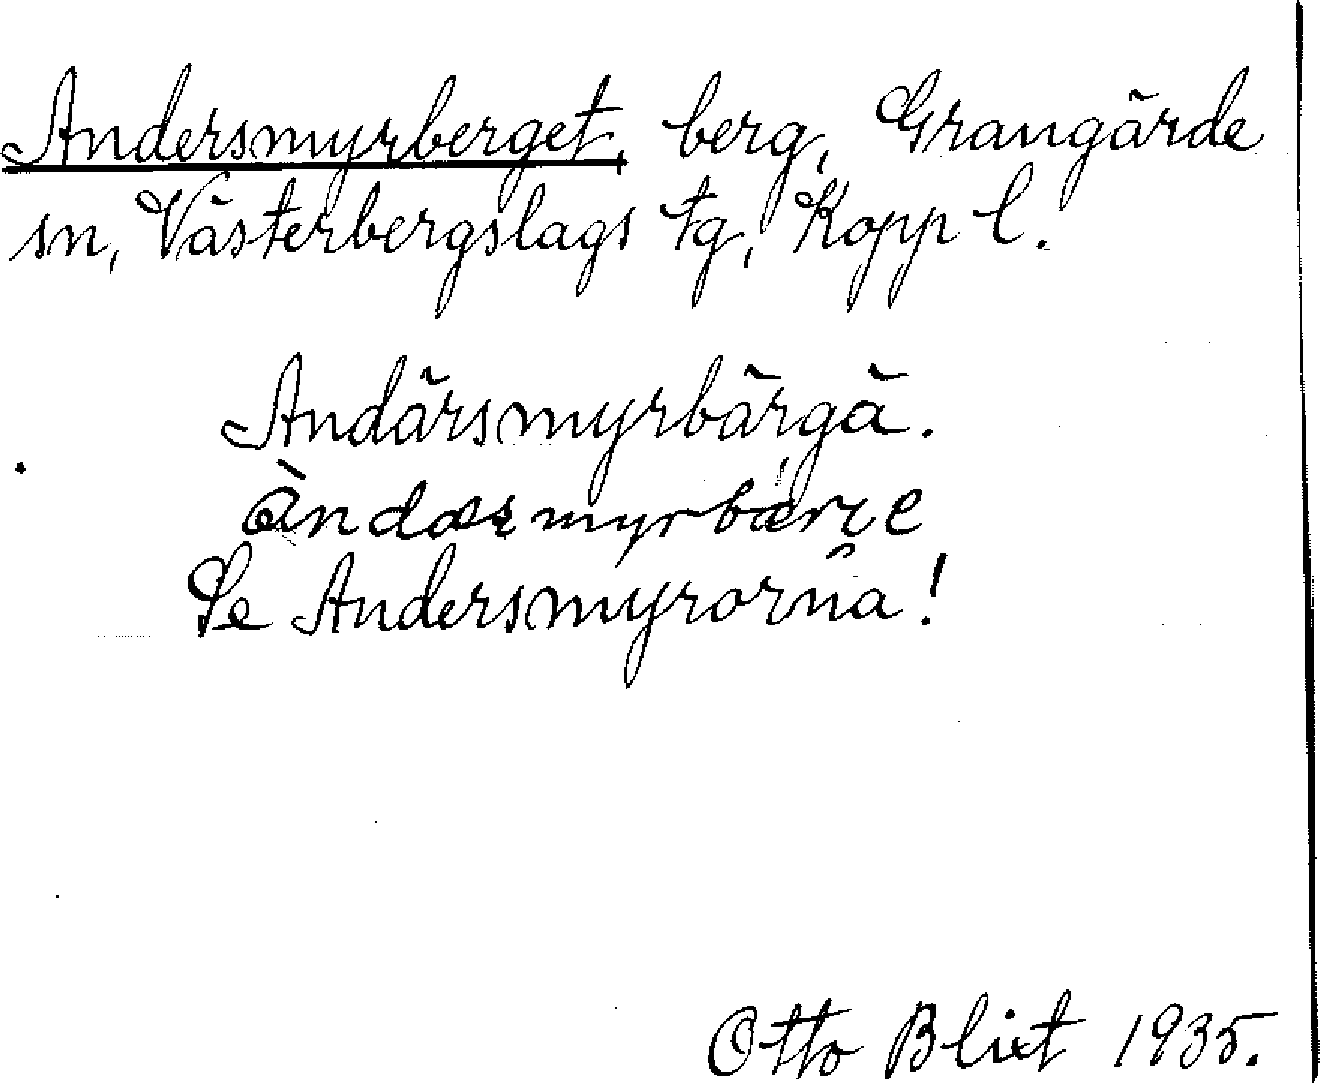 Andersmyrberget, berg, Grangärde
sn, Västerbergslags tg, Kopp l.
Andärsmyrbärgä.
Se Andersmyrorna!
Otto Blixt 1935.